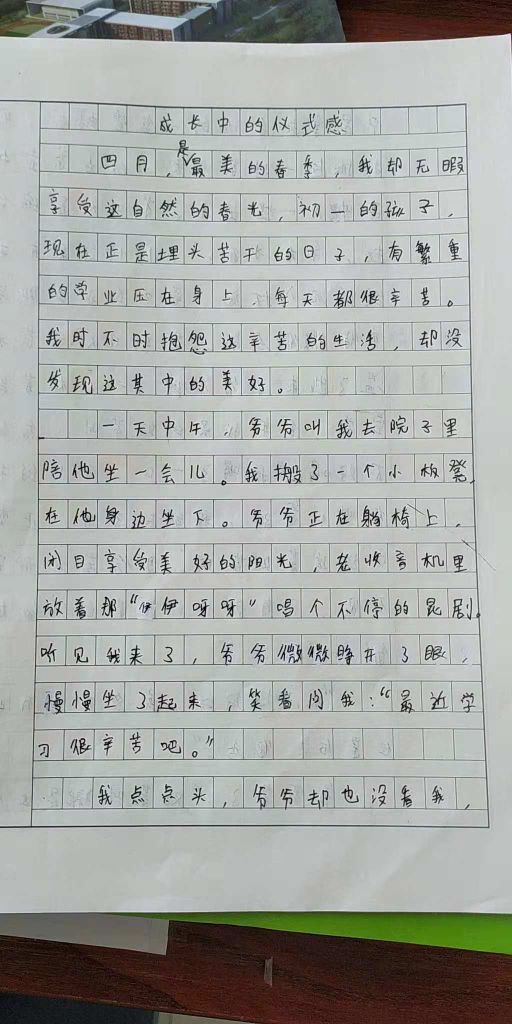 成长中的仪式感
四月,是最美的春季,我却无暇
享受这自然的春光,初一的孩子,
现在正是埋头苦干的日子,有繁重
的学业压在身上,每天都很辛苦。
我时不时抱怨这辛苦的生活,却没
发现这其中的美好。
一天中午,爷爷叫我去院子里
陪他坐一会儿。我搬了一个小板凳,
在他身边坐下。爷爷正在躺椅上,
闭目享受美好的阳光,老收音机里
放着那“伊伊呀呀”唱个不停的昆剧。
听见我来了,爷爷微微睁开了眼,
慢慢坐了起来,笑着问我:“最近学
习很辛苦吧。”
我点点头,爷爷却也没看我,